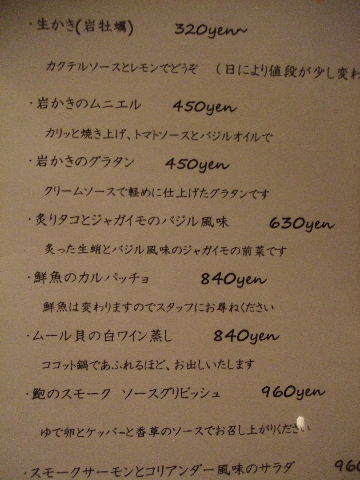 ・生かき(岩牡蠣) 320yen~
カクテルソースとレモンでどうぞ (日により値段が少し変わ
・岩かきのムニエル 450yen
カリッと焼き上げ、トマトソースとバジルオイルで
・岩かきのグラタン 450yen
クリームソースで軽めに仕上げたグラタンです
・炙りタコとジャガイモのバジル風味 630yen
炙った生蛸とバジル風味のジャガイモの前菜です
・鮮魚のカルパッチョ 840yen
鮮魚は変わりますのでスタッフにお尋ねください
・ムール貝の白ワイン蒸し 840yen
ココット鍋であふれるほど、お出しいたします
・鮑のスモーク ソースグリビッシュ 960yen
ゆで卵とケッパーと香草のソースでお召し上がりください
・スモークサーモンとコリアンダー風味のサラダ 960